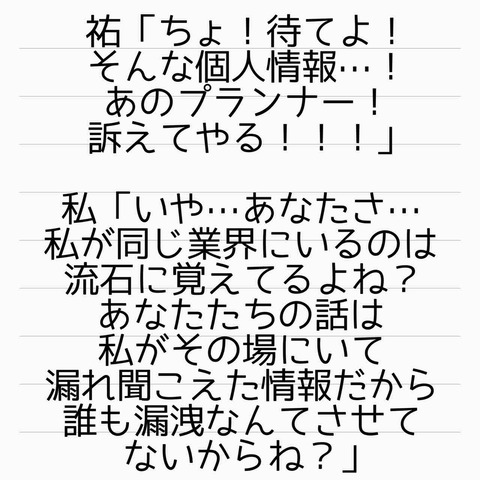 祐「ちょ！待てよ！
そんな個人情報…！
あのプランナー！
訴えてやる！！！」
私「いや…あなたさ…
私が同じ業界にいるのは
流石に覚えてるよね？
あなたたちの話は
私がその場にいて
漏れ聞こえた情報だから
誰も漏洩なんてさせて
ないからね？」